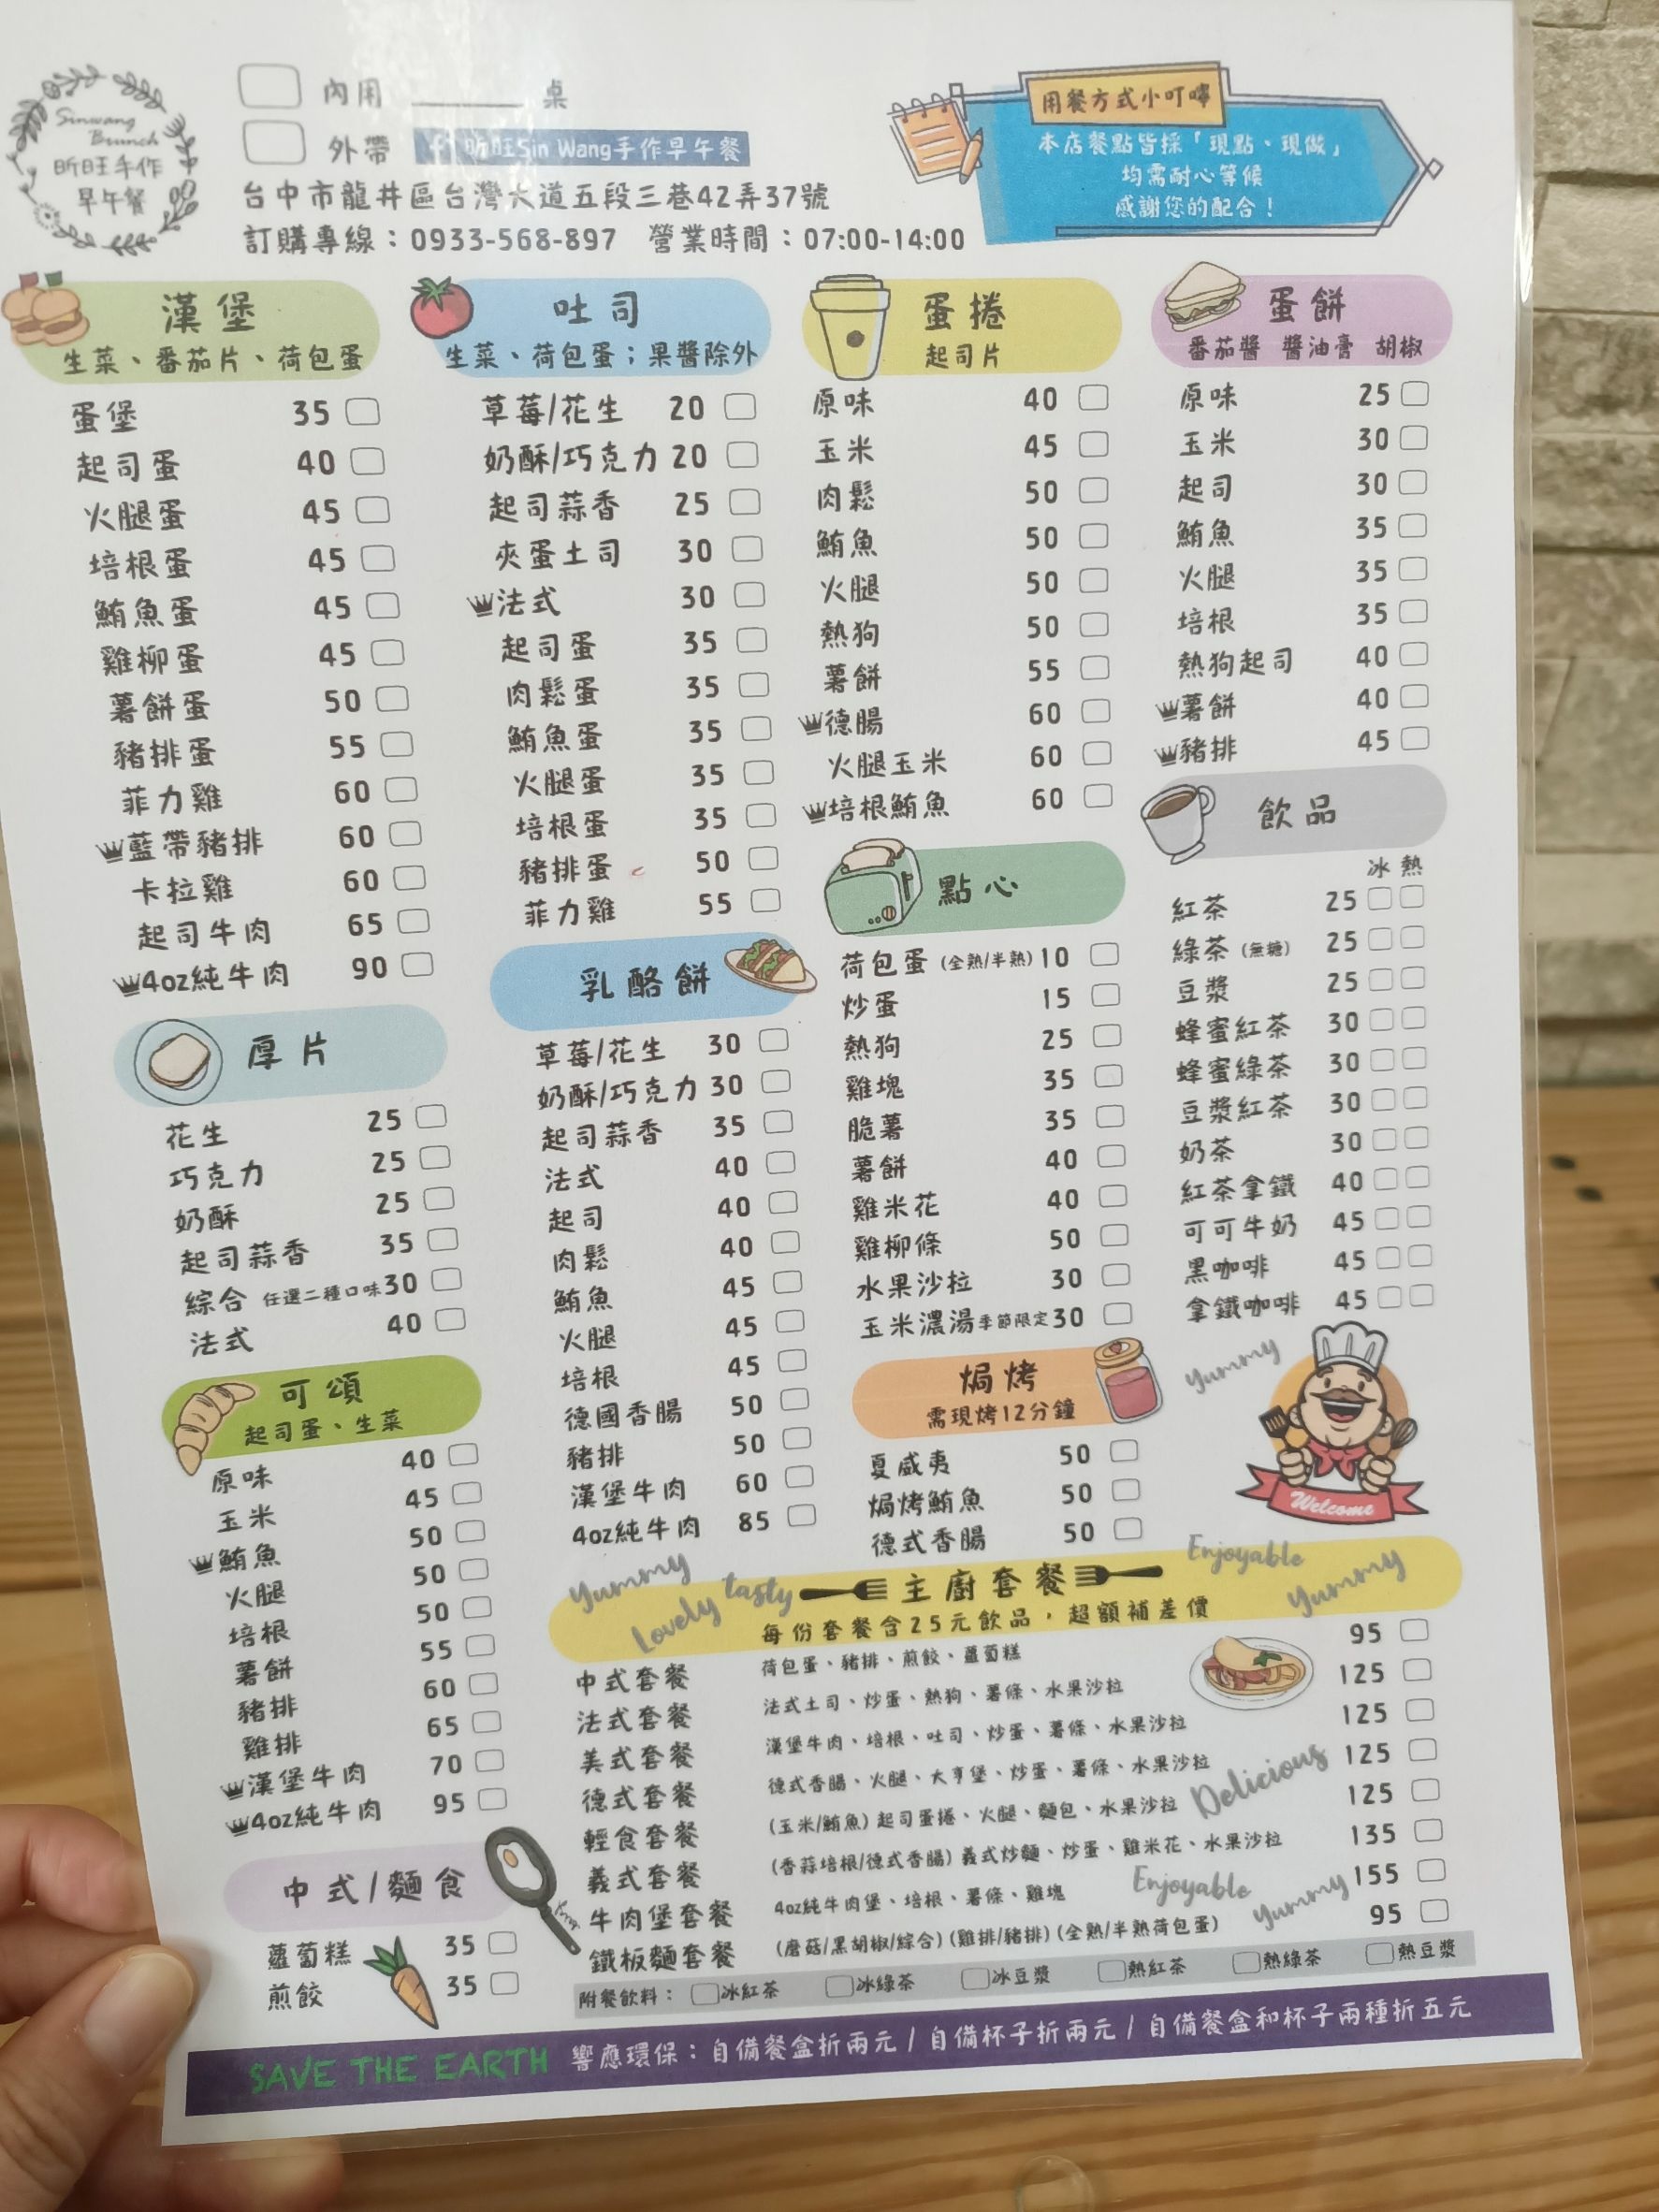 Sinwang
Brunch
昕旺手作
早午餐
內用 桌
外帶 昕旺Sin Wang手作早午餐
台中市龍井區台灣大道五段三巷42弄37號
訂購專線：0933-568-897 營業時間：07:00-14:00
用餐方式小叮嚀
本店餐點皆採「現點、現做」
均需耐心等候
感謝您的配合！
漢堡
生菜、番茄片、荷包蛋
蛋堡 35
起司蛋 40
火腿蛋 45
培根蛋 45
鮪魚蛋 45
雞柳蛋 45
薯餅蛋 50
豬排蛋 55
菲力雞 60
藍帶豬排 60
卡拉雞 60
起司牛肉 65
4oz純牛肉 90
厚片
花生 25
巧克力 25
奶酥 25
起司蒜香 35
綜合 任選二種口味 30
法式 40
可頌
起司蛋、生菜
原味 40
玉米 45
鮪魚 50
火腿 50
培根 50
薯餅 55
豬排 60
雞排 65
漢堡牛肉 70
4oz純牛肉 95
中式/麵食
蘿蔔糕 35
煎餃 35
吐司
生菜、荷包蛋；果醬除外
草莓/花生 20
奶酥/巧克力 20
起司蒜香 25
夾蛋土司 30
法式 30
起司蛋 35
肉鬆蛋 35
鮪魚蛋 35
火腿蛋 35
培根蛋 35
豬排蛋 50
菲力雞 55
乳酪餅
草莓/花生 30
奶酥/巧克力 30
起司蒜香 35
法式 40
起司 40
肉鬆 40
鮪魚 45
火腿 45
培根 45
德國香腸 50
豬排 50
漢堡牛肉 60
4oz純牛肉 85
蛋捲
起司片
原味 40
玉米 45
肉鬆 50
鮪魚 50
火腿 50
熱狗 50
薯餅 55
德腸 60
火腿玉米 60
培根鮪魚 60
點心
荷包蛋 (全熟/半熟) 10
炒蛋 15
熱狗 25
雞塊 35
脆薯 35
薯餅 40
雞米花 40
雞柳條 50
水果沙拉 30
玉米濃湯 季節限定 30
焗烤
需現烤12分鐘
夏威夷 50
焗烤鮪魚 50
德式香腸 50
蛋餅
番茄醬 醬油膏 胡椒
原味 25
玉米 30
起司 30
鮪魚 35
火腿 35
培根 35
熱狗起司 40
薯餅 40
豬排 45
飲品
冰 熱
紅茶 25
綠茶 (無糖) 25
豆漿 25
蜂蜜紅茶 30
蜂蜜綠茶 30
豆漿紅茶 30
奶茶 30
紅茶拿鐵 40
可可牛奶 45
黑咖啡 45
拿鐵咖啡 45
Yummy
Welcome
Yummy
Lovely tasty
Enjoyable
Yummy
主廚套餐
每份套餐含25元飲品，超額補差價
中式套餐 荷包蛋、豬排、煎餃、蘿蔔糕 95
法式套餐 法式土司、炒蛋、熱狗、薯條、水果沙拉 125
美式套餐 漢堡牛肉、培根、吐司、炒蛋、薯條、水果沙拉 125
德式套餐 德式香腸、火腿、大亨堡、炒蛋、薯條、水果沙拉 125
Delicious
輕食套餐 (玉米/鮪魚) 起司蛋捲、火腿、麵包、水果沙拉 125
義式套餐 (香蒜培根/德式香腸) 義式炒麵、炒蛋、雞米花、水果沙拉 135
牛肉堡套餐 4oz純牛肉堡、培根、薯條、雞塊 155
Enjoyable
Yummy
鐵板麵套餐 (蘑菇/黑胡椒/綜合) (雞排/豬排) (全熟/半熟荷包蛋) 95
附餐飲料： 冰紅茶 冰綠茶 冰豆漿 熱紅茶 熱綠茶 熱豆漿
SAVE THE EARTH 響應環保：自備餐盒折兩元 / 自備杯子折兩元 / 自備餐盒和杯子兩種折五元